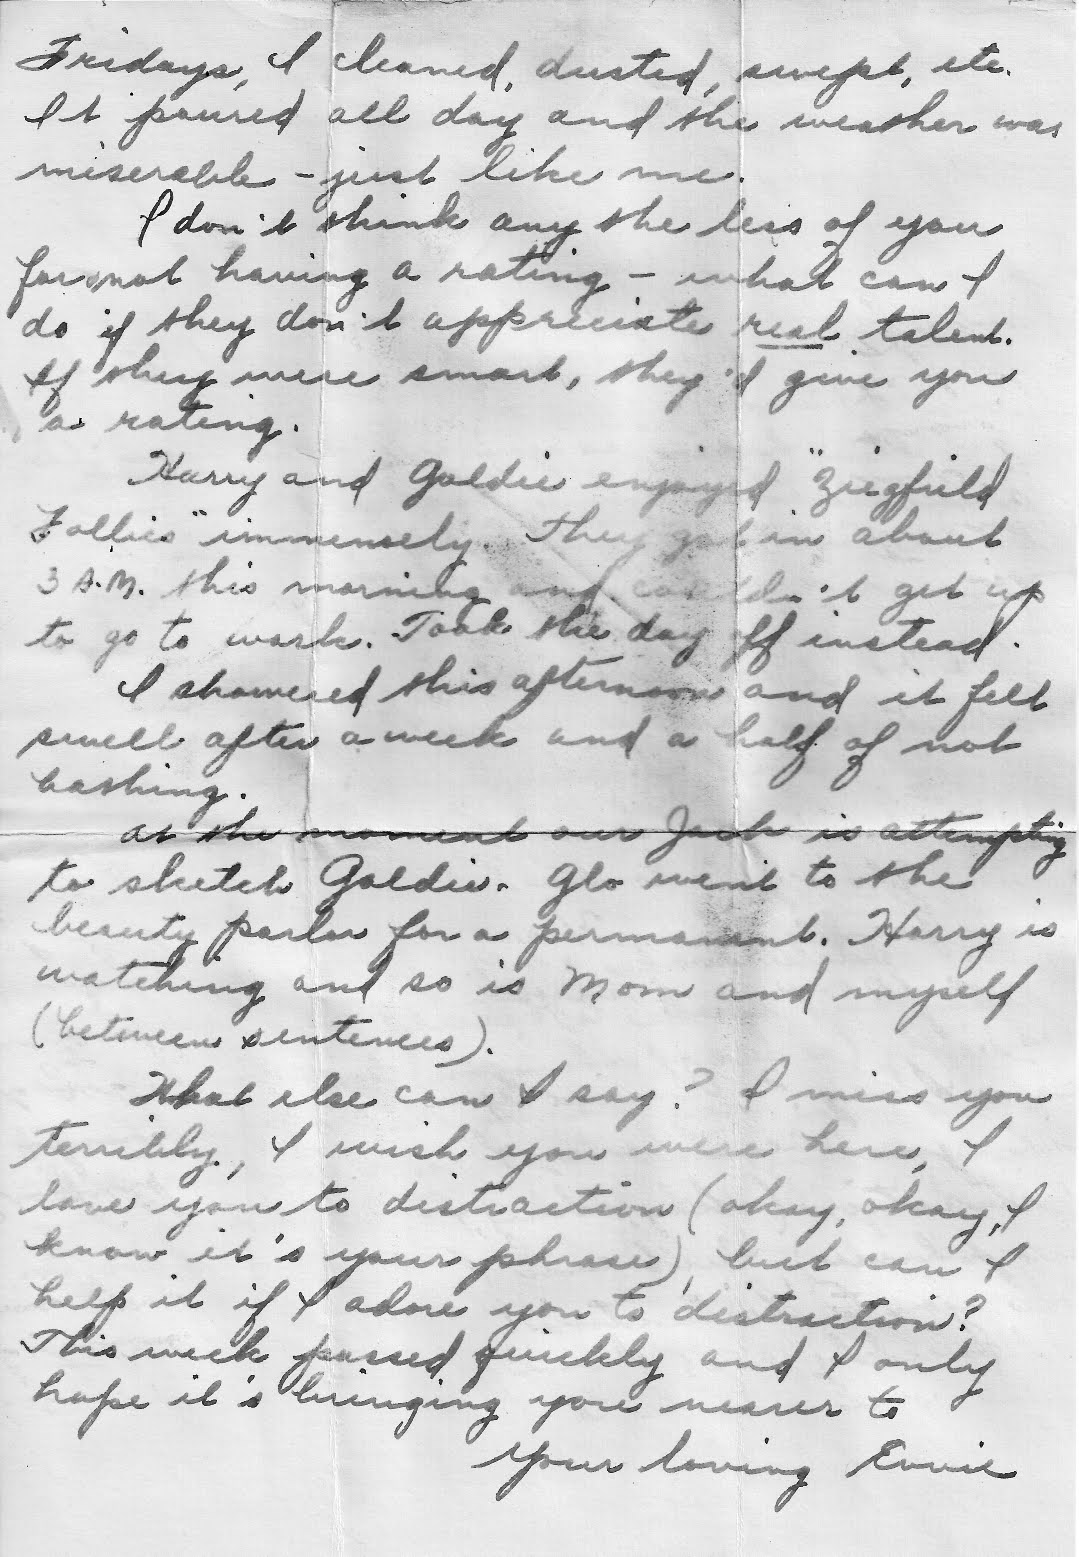 Fridays, I cleaned, dusted, swept, etc.
It poured all day and the weather was
miserable - just like me.
I don't think any the less of you
for not having a rating - what can I
do if they don't appreciate real talent.
If they were smart, they'd give you
a rating.
Harry and Goldie enjoyed "Ziegfield
Follies" immensely. They got in about
3 A.M. this morning and couldn't get up
to go to work. Took the day off instead.
I showered this afternoon and it felt
swell after a week and a half of not
bathing.
At the moment our Jack is attempting
to sketch Goldie. Glo went to the
beauty parlor for a permanent. Harry is
watching and so is Mom and myself
(between sentences).
What else can I say? I miss you
terribly, I wish you were here, I
love you to distraction (okay, okay, I
know it's your phrase), but can I
help it if I adore you to distraction?
This week passed quickly and I only
hope it's bringing you nearer to
Your loving Evvie